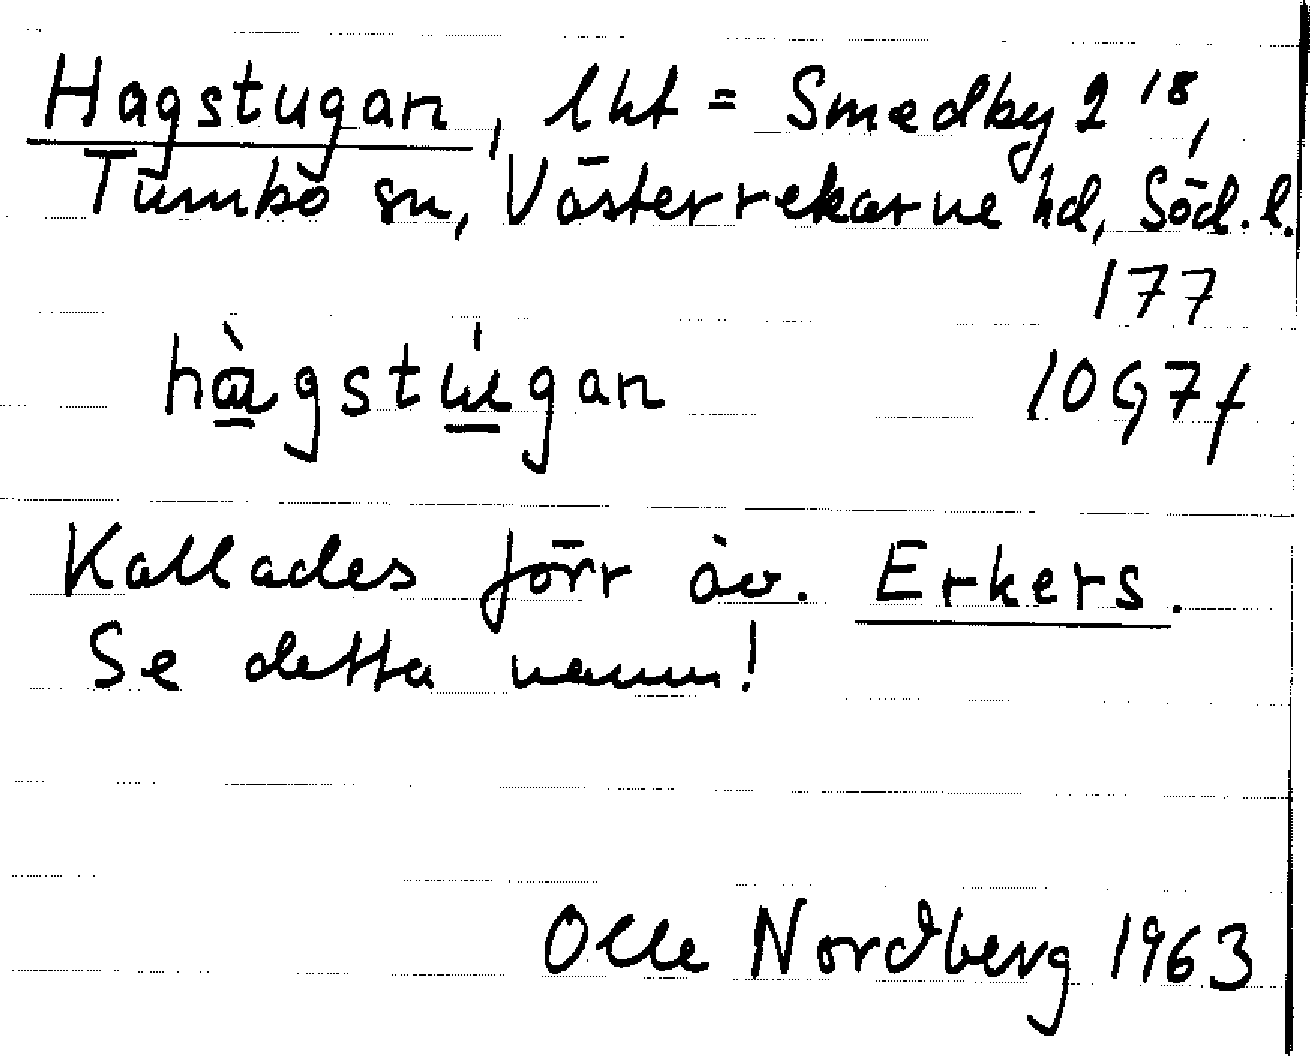 Hagstugan, lht = Smedby 2 18,
Tumbo sn, Västerrekarne hd, Söd. l.
177
hàgstúgan 10G7f
Kallades förr åv. Erkers.
Se detta namn!
Olle Nordberg 1963